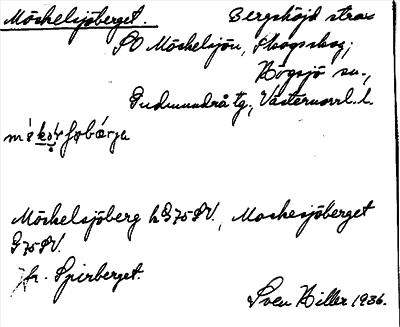 Möckelsjöberget. Bergshöjd strax
SO Möckelsjön, Skogsskog,
Högsjö sn.,
Gudmundrå tg, Västernorrl. l.
Möckelsjöberg h G75SV, Mockesjöberget
G75SV.
Jfr. Spirberget.
Sven Hiller 1936.